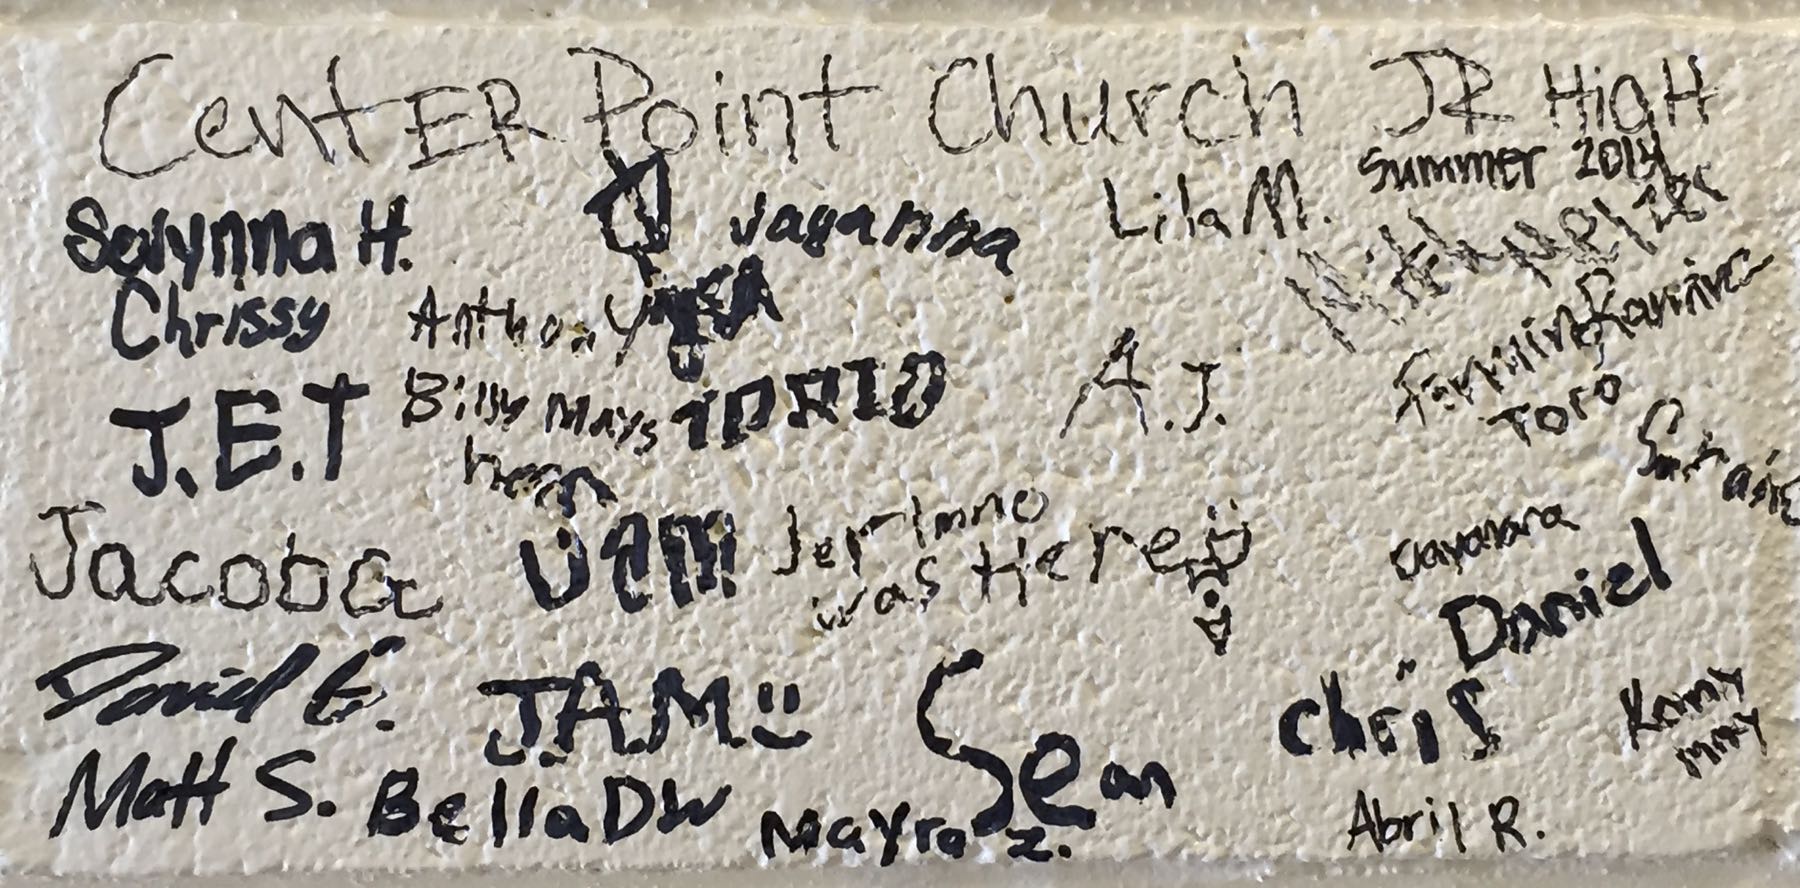 CentER Point Church JR HigH
Summer 2014
Selynna H.
Jayanna
Lila M.
Chrissy
Anthony
A.J.
J.E.T
Billy Mays
here
Toro
Jacoba
Jam
Jer
was Here
Dayanara
Daniel
David G.
JAM
Sean
Chris
Kenny
Matt S.
Bella DW
Mayra Z.
Abril R.